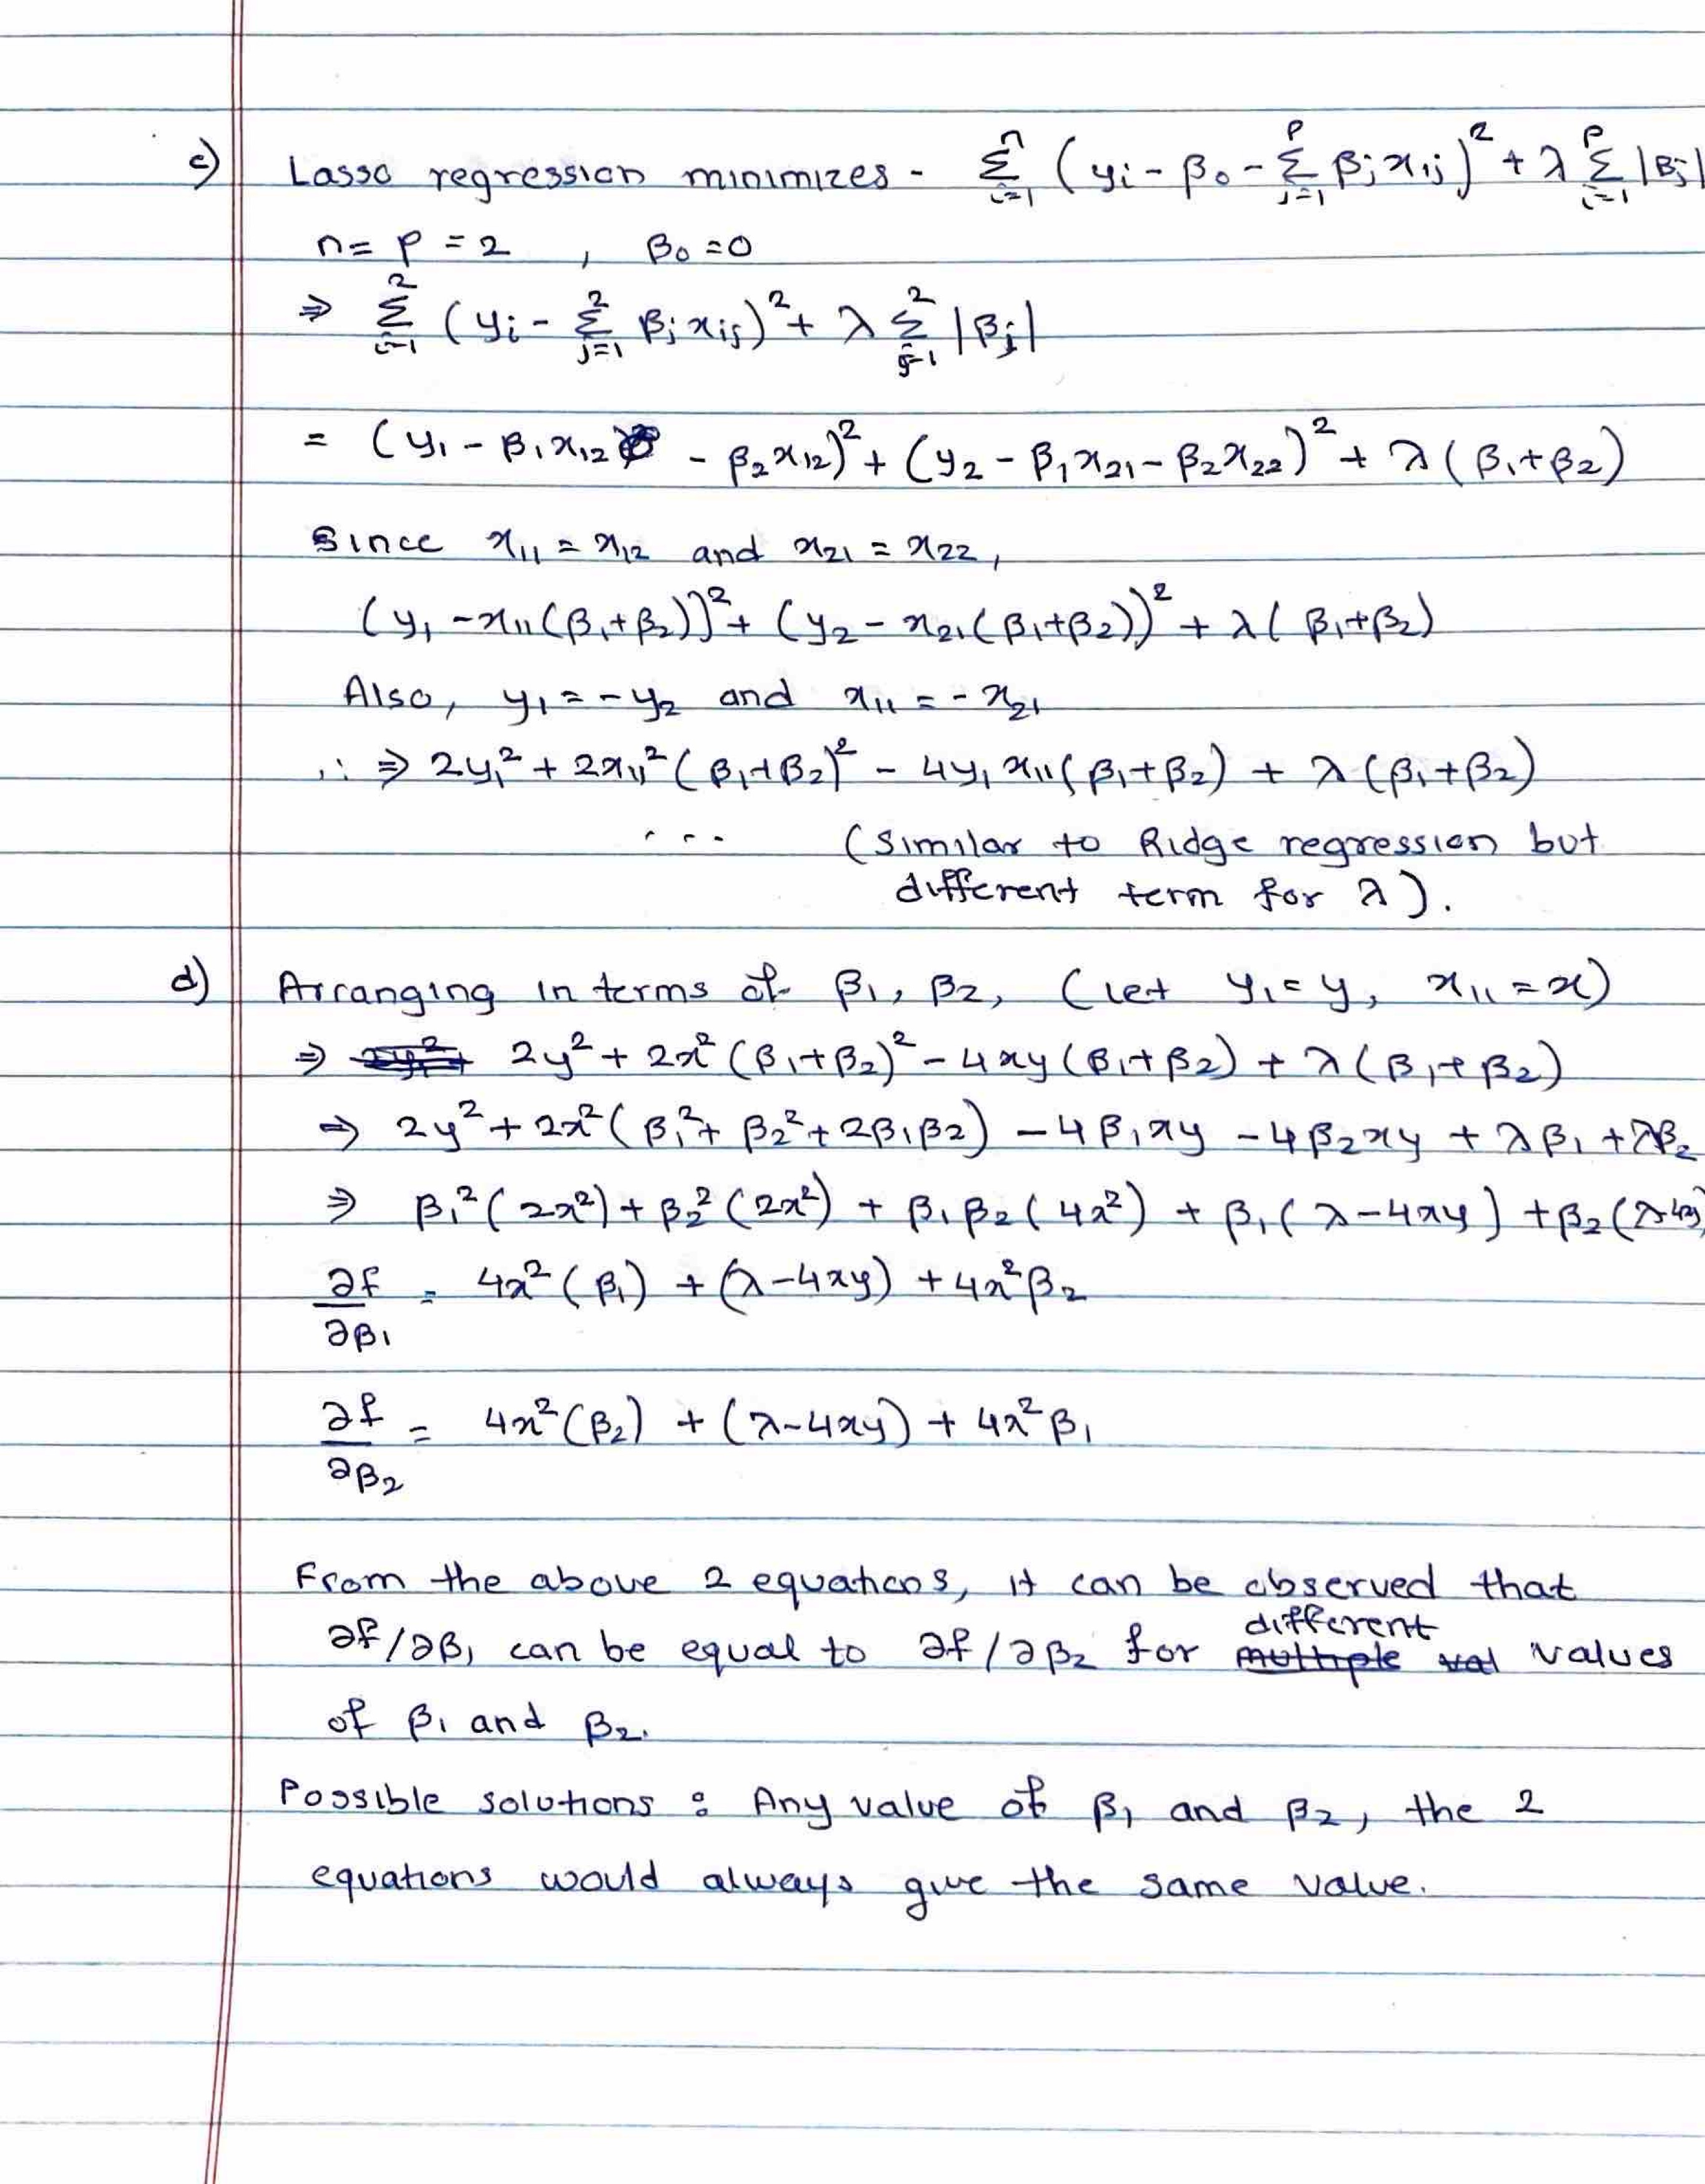 c) Lasso regression minimizes - Σ_{i=1}^{n} (yi - β0 - Σ_{j=1}^{p} βj xij)² + λ Σ_{i=1}^{p} |βj|
n = p = 2 , β0 = 0
⇒ Σ_{i=1}^{2} (yi - Σ_{j=1}^{2} βj xij)² + λ Σ_{j=1}^{2} |βj|
= (y1 - β1x12 - β2x12)² + (y2 - β1x21 - β2x22)² + λ(β1+β2)
Since x11 = x12 and x21 = x22,
(y1 - x11(β1+β2))² + (y2 - x21(β1+β2))² + λ(β1+β2)
Also, y1 = -y2 and x11 = -x21
∴ ⇒ 2y1² + 2x11²(β1+β2)² - 4y1x11(β1+β2) + λ(β1+β2)
... (Similar to Ridge regression but
different term for λ).
d) Arranging in terms of β1, β2, (let y1 = y, x11 = x)
⇒ 2y² + 2x²(β1+β2)² - 4xy(β1+β2) + λ(β1+β2)
⇒ 2y² + 2x²(β1² + β2² + 2β1β2) - 4β1xy - 4β2xy + λβ1 + λβ2
⇒ β1²(2x²) + β2²(2x²) + β1β2(4x²) + β1(λ-4xy) + β2(λ-4xy)
∂f/∂β1 = 4x²(β1) + (λ-4xy) + 4x²β2
∂f/∂β2 = 4x²(β2) + (λ-4xy) + 4x²β1
From the above 2 equations, it can be observed that
∂f/∂β1 can be equal to ∂f/∂β2 for different values
of β1 and β2.
Possible solutions : Any value of β1 and β2, the 2
equations would always give the same value.